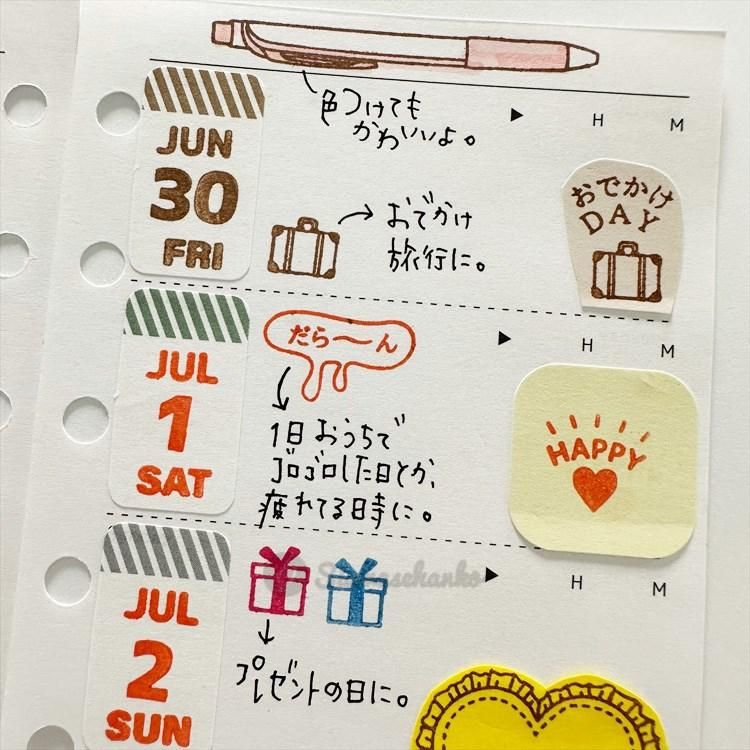 色つけても
かわいいよ。
▶ H M
JUN
30
FRI
おでかけ
旅行に。
おでかけ
DAY
▶ H M
JUL
1
SAT
だら〜ん
1日おうちで
ゴロゴロした日とか、
疲れてる時に。
HAPPY
▶ H M
JUL
2
SUN
プレゼントの日に。